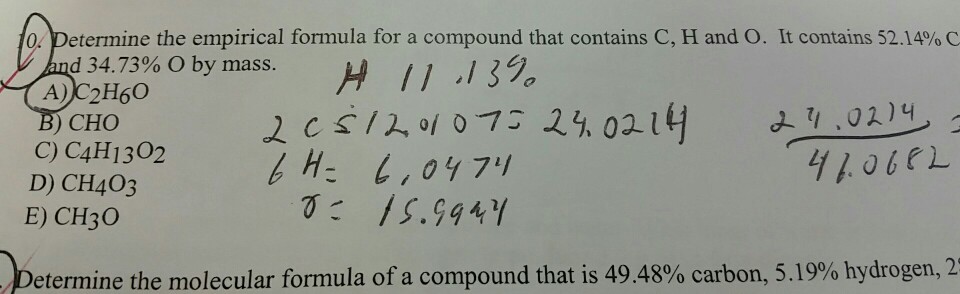 0. Determine the empirical formula for a compound that contains C, H and O. It contains 52.14% C
and 34.73% O by mass.
H 11.13%
A) C2H6O
B) CHO
C) C4H13O2
D) CH4O3
E) CH3O
2 C 12.0107= 24.0214
6 H= 6.0474
O= 15.9994
24.0214
Determine the molecular formula of a compound that is 49.48% carbon, 5.19% hydrogen, 2